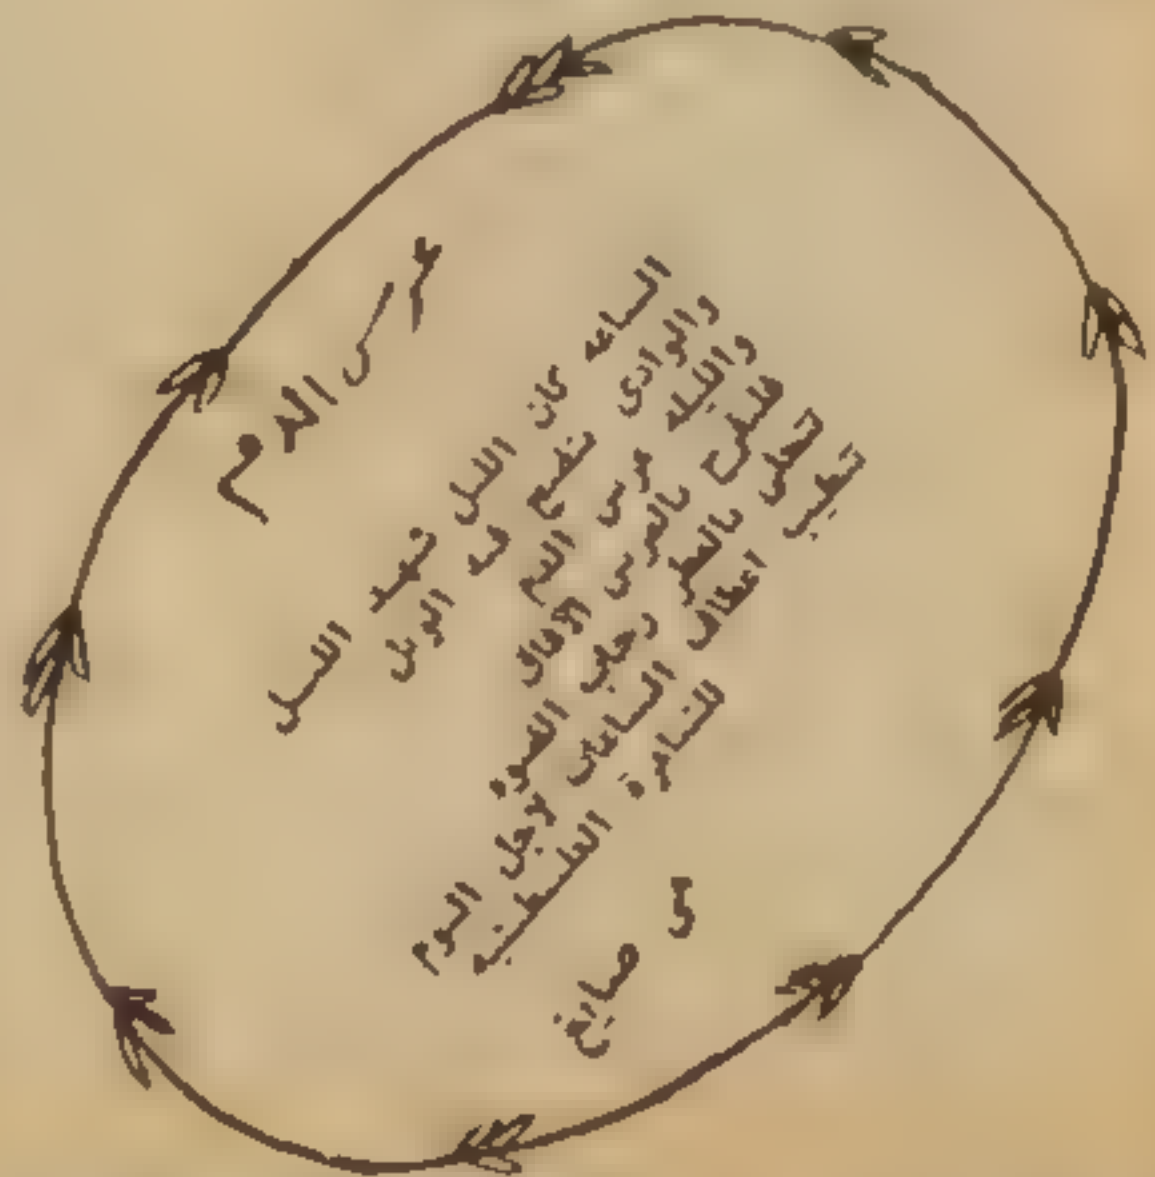 عرس الدم
الساعه كان الليل شهد الليل
والوادى تضيع فيه الويل
والليله عرس الدم
فلنفرح بالعرس الآفاق
تحظى بالعطر رحاب القسوة
تطيب اعطاف الساعات لاجل اليوم
للشاعرة الفلسطينيه
مى صايغ